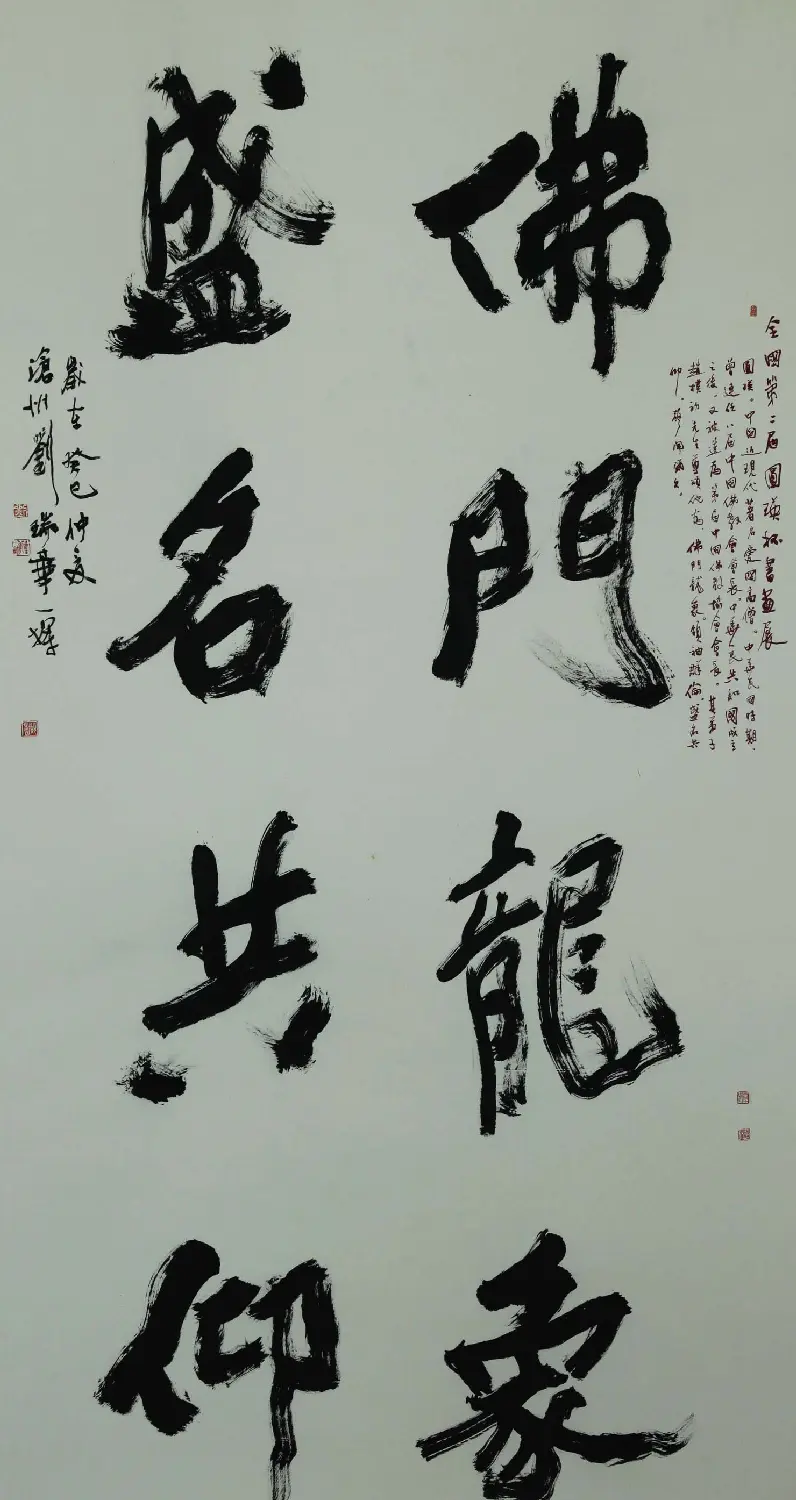 全國第二屆圓瑛杯書畫展
圓瑛。中國近現代著名愛國高僧。中華民國時期、
曾連任八屆中國佛教會會長。中華人民共和國成立
之後、又被選為第一屆中國佛教協會會長。其弟子
趙樸初先生尊頌他為、佛門龍象。領袖群倫。盛名共
仰、
佛門龍象
盛名共仰
歲在癸巳仲夏
滄州劉瑞華一揮